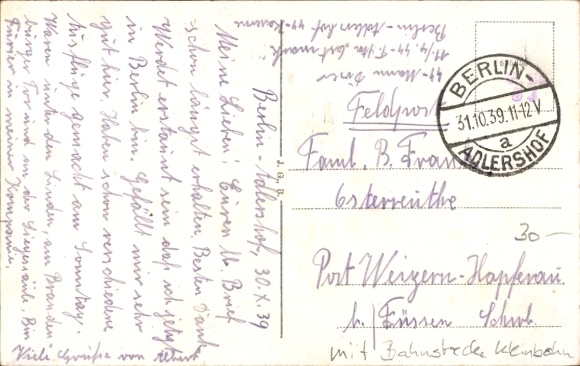 Berlin-Adlershof, 30.X.39
Meine Lieben! Euren lb. Brief
schon längst erhalten, Besten Dank
Werdet erstaunt sein daß ich jetzt
in Berlin bin. Gefällt mir sehr
gut hier. Haben schon verschiedene
Ausflüge gemacht am Sonntag.
Waren unter den Linden, am Branden
burger Tor und in der Siegessäule. Bin
Fürier in meiner Kompanie.
Viele Grüße von Albert
J. G. B.
44-Mann
11/4. 44-T.
Berlin-Adlershof 44-Kaserne
Feldpost
BERLIN-
31.10.39.11-12 V
a
ADLERSHOF
Faml. B.
Osterreuthe
30-
Post Weizern-Hopferau
b. Füssen Schwb.
mit Bahnstrecke Kleinbahn